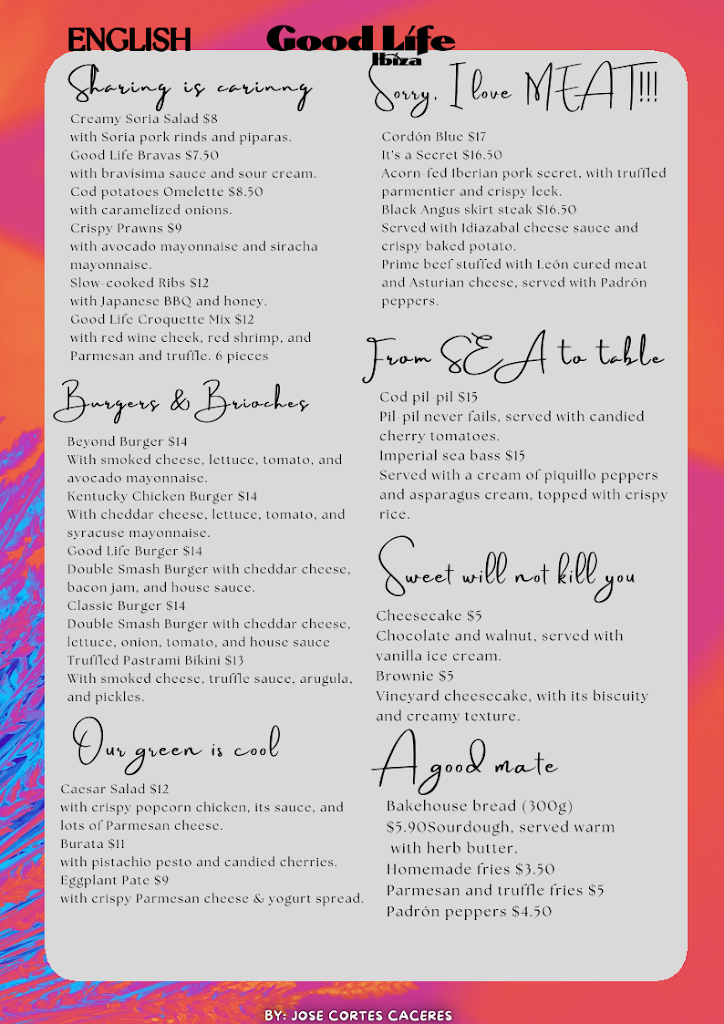 ENGLISH
Good Life
Ibiza
Sharing is carinng
Creamy Soria Salad $8
with Soria pork rinds and piparas.
Good Life Bravas $7.50
with bravísima sauce and sour cream.
Cod potatoes Omelette $8.50
with caramelized onions.
Crispy Prawns $9
with avocado mayonnaise and siracha
mayonnaise.
Slow-cooked Ribs $12
with Japanese BBQ and honey.
Good Life Croquette Mix $12
with red wine cheek, red shrimp, and
Parmesan and truffle. 6 pieces
Burgers & Brioches
Beyond Burger $14
With smoked cheese, lettuce, tomato, and
avocado mayonnaise.
Kentucky Chicken Burger $14
With cheddar cheese, lettuce, tomato, and
syracuse mayonnaise.
Good Life Burger $14
Double Smash Burger with cheddar cheese,
bacon jam, and house sauce.
Classic Burger $14
Double Smash Burger with cheddar cheese,
lettuce, onion, tomato, and house sauce
Truffled Pastrami Bikini $13
With smoked cheese, truffle sauce, arugula,
and pickles.
Our green is cool
Caesar Salad $12
with crispy popcorn chicken, its sauce, and
lots of Parmesan cheese.
Burata $11
with pistachio pesto and candied cherries.
Eggplant Pate $9
with crispy Parmesan cheese & yogurt spread.
Sorry, I love MEAT!!!
Cordón Blue $17
It's a Secret $16.50
Acorn-fed Iberian pork secret, with truffled
parmentier and crispy leek.
Black Angus skirt steak $16.50
Served with Idiazabal cheese sauce and
crispy baked potato.
Prime beef stuffed with León cured meat
and Asturian cheese, served with Padrón
peppers.
From SEA to table
Cod pil-pil $15
Pil-pil never fails, served with candied
cherry tomatoes.
Imperial sea bass $15
Served with a cream of piquillo peppers
and asparagus cream, topped with crispy
rice.
Sweet will not kill you
Cheesecake $5
Chocolate and walnut, served with
vanilla ice cream.
Brownie $5
Vineyard cheesecake, with its biscuity
and creamy texture.
A good mate
Bakehouse bread (300g)
$5.90Sourdough, served warm
with herb butter.
Homemade fries $3.50
Parmesan and truffle fries $5
Padrón peppers $4.50
BY: JOSE CORTES CACERES